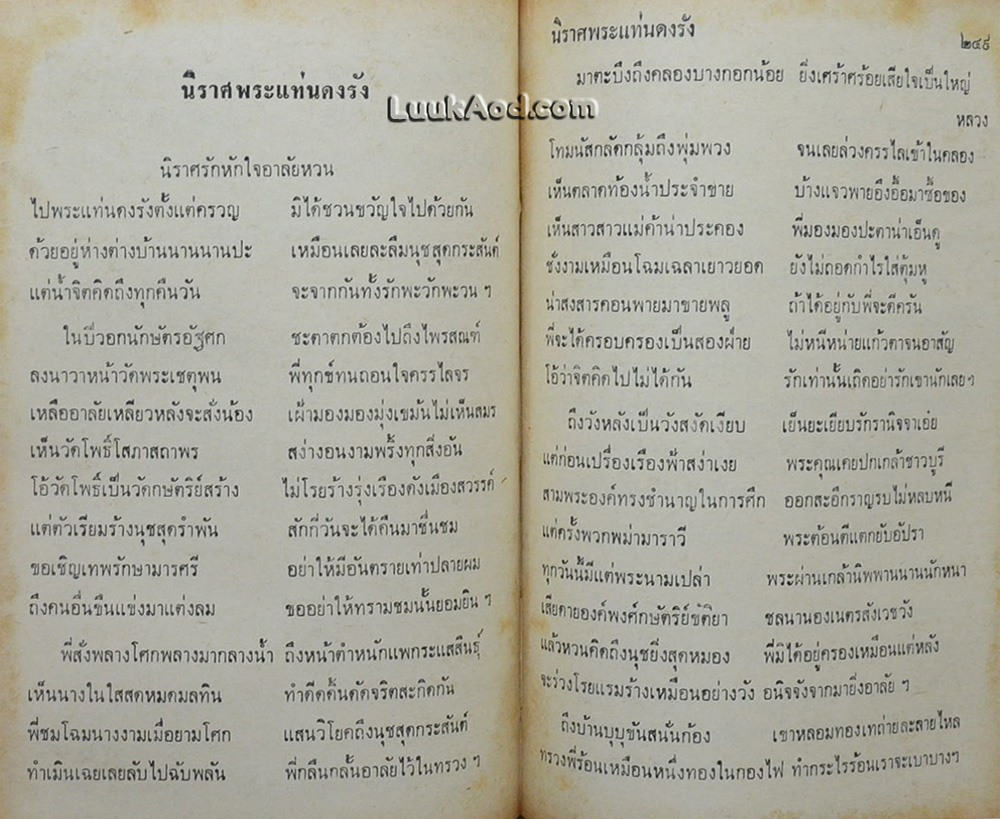 นิราศพระแท่นดงรัง
LuukAod.com
นิราศรักหักใจอาลัยหวน
ไปพระแท่นดงรังตั้งแต่ครวญ มิได้ชวนขวัญใจไปด้วยกัน
ด้วยอยู่ห่างต่างบ้านนานนานปะ เหมือนเลยละลืมนุชสุดกระสันต์
แต่น้ำจิตคิดถึงทุกคืนวัน จะจากกันทั้งรักพะวักพะวน ฯ
ในปีวอกนักษัตรอัฐศก ชะตาตกต้องไปถึงไพรสณฑ์
ลงนาวาหน้าวัดพระเชตุพน พี่ทุกข์ทนถอนใจครรไลจร
เหลืออาลัยเหลียวหลังจะสั่งน้อง เฝ้ามองมองมุ่งเขม้นไม่เห็นสมร
เห็นวัดโพธิ์โสภาสถาพร สง่างอนงามพริ้งทุกสิ่งอัน
โอ้วัดโพธิ์เป็นวัดกษัตริย์สร้าง ไม่โรยร้างรุ่งเรืองดังเมืองสวรรค์
แต่ตัวเรียมร้างนุชสุดรำพัน สักกี่วันจะได้คืนมาชื่นชม
ขอเชิญเทพรักษามารศรี อย่าให้มีอันตรายเท่าปลายผม
ถึงคนอื่นขืนแข่งมาแต่งลม ขออย่าให้ทรามชมนั้นยอมยิน ฯ
พี่สั่งพลางโศกพลางมากลางน้ำ ถึงหน้าตำหนักแพกระแสสินธุ์
เห็นนางในใสสดหมดมลทิน ทำดีดดิ้นดัดจริตสะกิดกัน
พี่ชมโฉมนางงามเมื่อยามโศก แสนวิโยคถึงนุชสุดกระสันต์
ทำเมินเฉยเลยลับไปฉับพลัน พี่กลืนกลั้นอาลัยไว้ในทรวง ฯ
นิราศพระแท่นดงรัง ๒๔๙
มาตะบึงถึงคลองบางกอกน้อย ยิ่งเศร้าสร้อยเสียใจเป็นใหญ่
หลวง
โทมนัสกลัดกลุ้มถึงพุ่มพวง จนเลยล่วงครรไลเข้าในคลอง
เห็นตลาดท้องน้ำประจำขาย บ้างแจวพายอึงอื้อมาซื้อของ
เห็นสาวสาวแม่ค้าน่าประคอง พี่มองมองปะตาน่าเอ็นดู
ช่างงามเหมือนโฉมเฉลาเยาวยอด ยังไม่ถอดกำไรใส่ตุ้มหู
น่าสงสารคอนพายมาขายพลู ถ้าได้อยู่กับพี่จะดีครัน
พี่จะได้ครอบครองเป็นสองฝ่าย ไม่หนีหน่ายแก้วตาจนอาสัญ
โอ้ว่าจิตคิดไปไม่ได้กัน รักเท่านั้นเถิดอย่ารักเขานักเลยฯ
ถึงวังหลังเป็นวังสงัดเงียบ เย็นยะเยียบรักรานิจจาเอ๋ย
แต่ก่อนเปรื่องเรืองฟ้าสง่าเงย พระคุณเคยปกเกล้าชาวบูรี
สามพระองค์ทรงชำนาญในการศึก ออกสะอึกราญรบไม่หลบหนี
แต่ครั้งพวกพม่ามาราวี พระต้อนตีแตกยับอัปรา
ทุกวันนี้มีแต่พระนามเปล่า พระผ่านเกล้านิพพานนานนักหนา
เสียดายองค์พงศ์กษัตริย์ขัติยา ชลนานองเนตรสังเวชวัง
แล้วหวนคิดถึงนุชยิ่งสุดหมอง พี่มิได้อยู่ครองเหมือนแต่หลัง
จะร่วงโรยแรมร้างเหมือนอย่างวัง อนิจจังจากมายิ่งอาลัย ฯ
ถึงบ้านบุบุขันสนั่นก้อง เขาหลอมทองเทถ่ายละลายไหล
ทรวงพี่ร้อนเหมือนหนึ่งทองในกองไฟ ทำกระไรร้อนเราจะเบาบางฯ